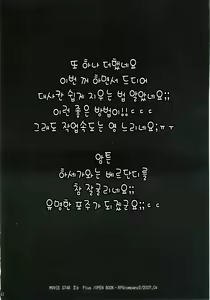 또 하나 더했네요
이번 꺼 하면서 드디어
대사칸 쉽게 지우는 법 알았네요;;
이런 좋은 방법이!! ㄷㄷㄷ
그래도 작업속도는 영 느리네요;ㅠㅜ
암튼
하세가와는 베르단디를
참 잘굴리네요;;
유명한 포주가 되겠군요;;ㄷㄷ
MOVIE STAR Ⅱa Plus /OPEN BOOK・RPGcompany2/2007.04